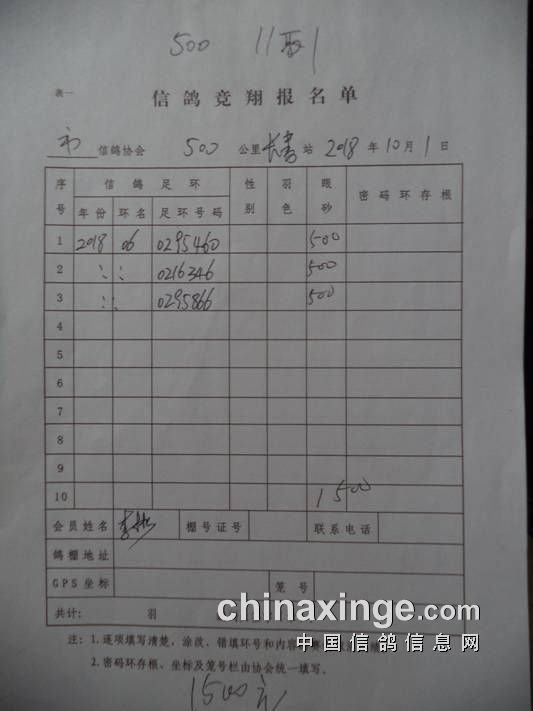 500 11取1
表一
信鸽竞翔报名单
市 信鸽协会 500 公里 长寿 站 2018 年 10 月 1 日
序号 信鸽足环 性别 羽色 眼砂 密码环存根
年份 环名 足环号码
1 2018 06 0295460 500
2 〃 〃 0216346 500
3 〃 〃 0295866 500
4
5
6
7
8
9
10 1500
会员姓名 李 棚号证号 联系电话
鸽棚地址
GPS坐标 笼号
共计: 羽
注:1.逐项填写清楚,涂泼、错填环号和内容
2.密码环存根、坐标及笼号栏由协会统一填写。
chinaxinge.com
中国信鸽信息网
1500元